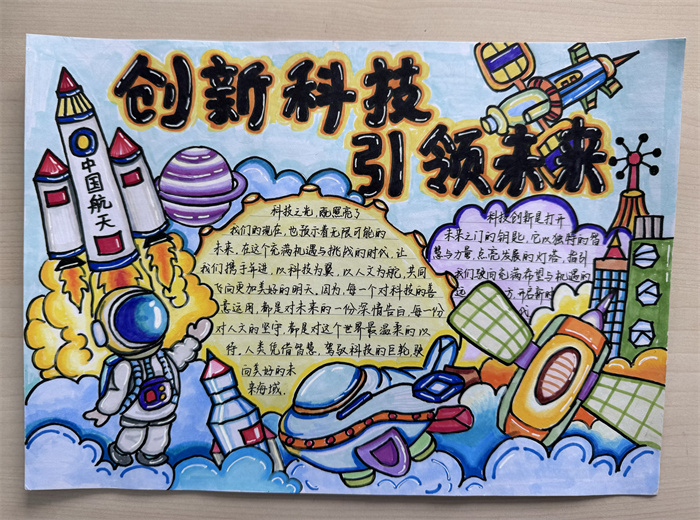 创新科技
引领未来
中国航天
科技之光,既照亮了
我们的现在,也预示着无限可能的
未来。在这个充满机遇与挑战的时代,让
我们携手并进,以科技为翼,以人文为舵,共同
飞向更加美好的明天。因为,每一个对科技的善
意运用,都是对未来的一份深情告白,每一份
对人文的坚守,都是对这个世界最温柔的以
待。人类凭借智慧,驾驭科技的巨轮,驶
向美好的未
来海域。
科技创新是打开
未来之门的钥匙,它以独特的智
慧与力量,点亮发展的灯塔,指引
我们驶向充满希望与机遇的
远方,开启新时
代